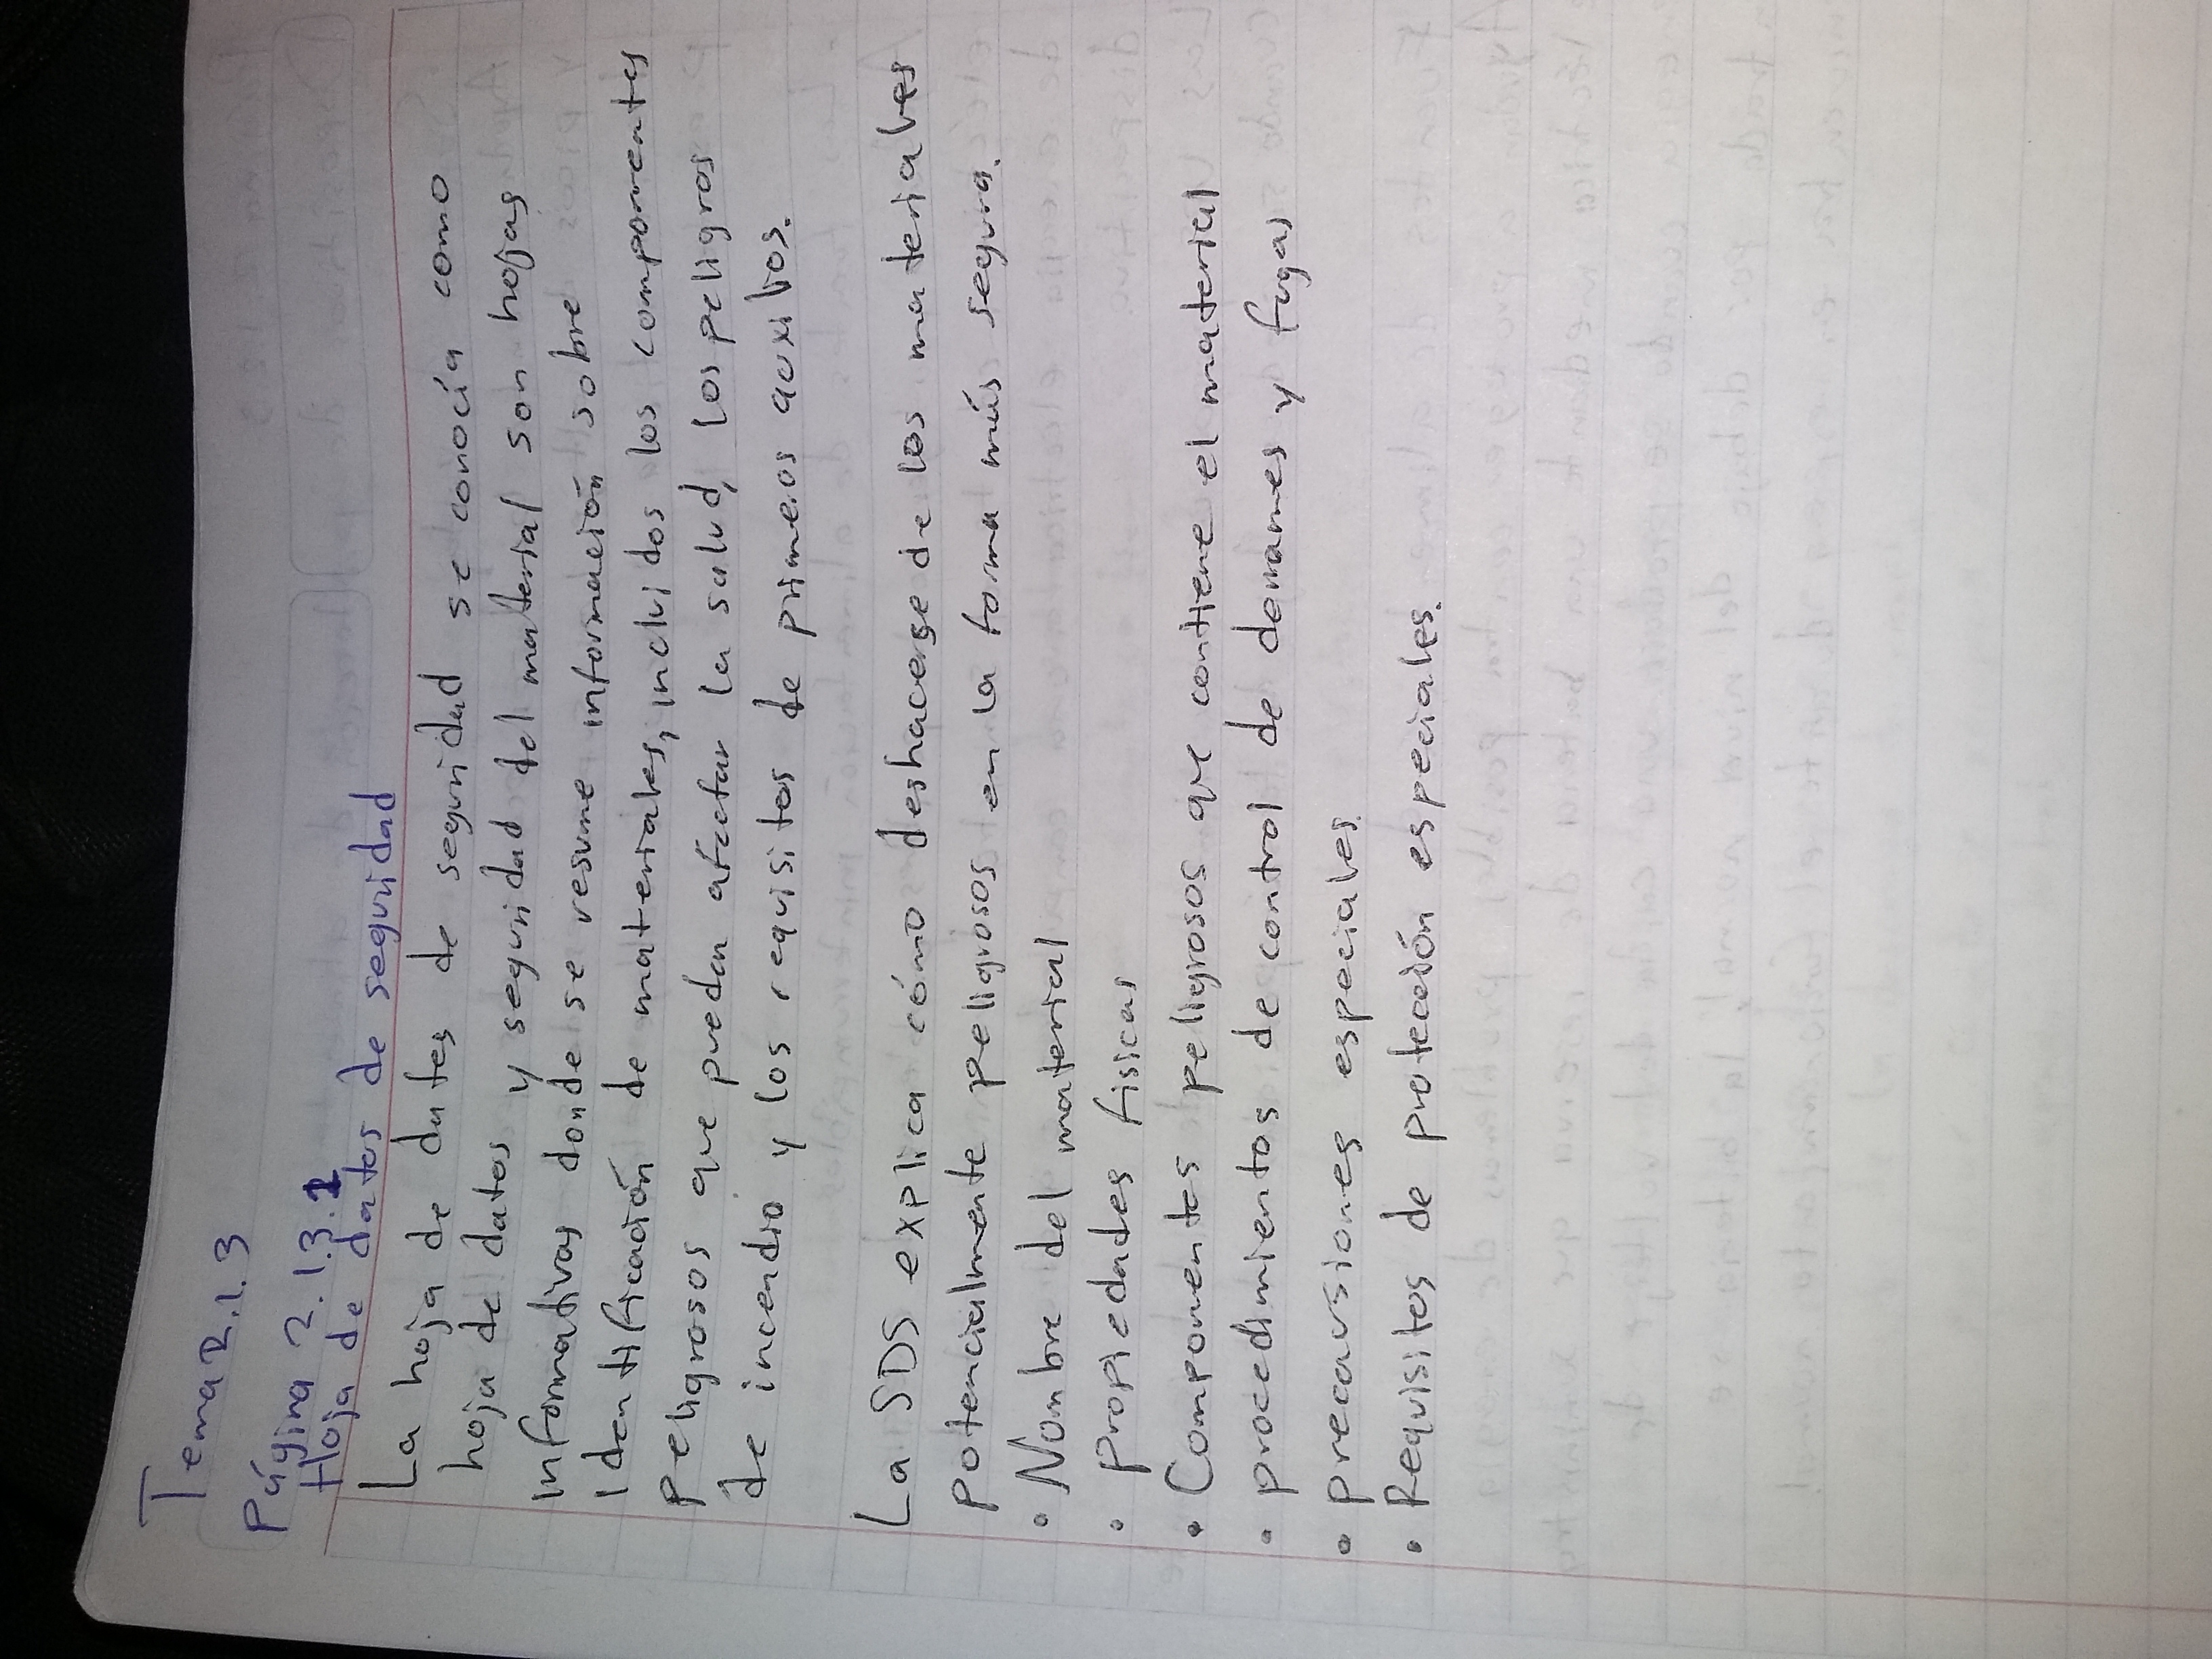 Tema 2.1.3
Página 2.1.3.2
Hoja de datos de seguridad
La hoja de datos de seguridad se conocía como
hoja de datos y seguridad del material son hojas
informativas donde se resume información sobre
Identificación de materiales, incluidos los componentes
peligrosos que pueden afectar la salud, los peligros
de incendio y los requisitos de primeros auxilios.
La SDS explica cómo deshacerse de los materiales
potencialmente peligrosos en la forma más segura.
• Nombre del material
• propiedades fisicas
• Componentes peligrosos que contiene el material
• procedimientos de control de derrames y fugas
• precausiones especiales.
• Requisitos de protección especiales.